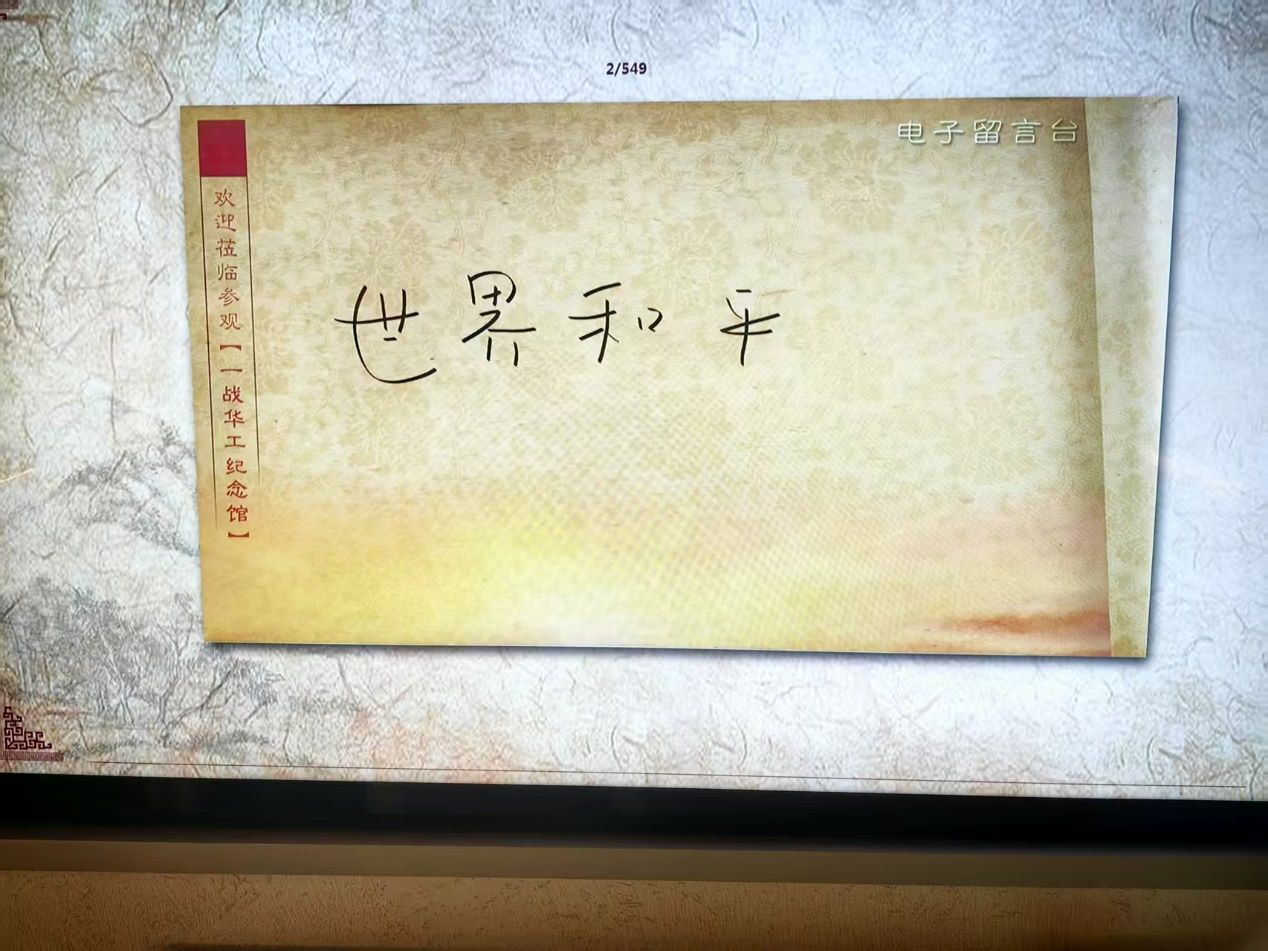 2/549
电子留言台
欢迎莅临参观【一战华工纪念馆】
世界和平